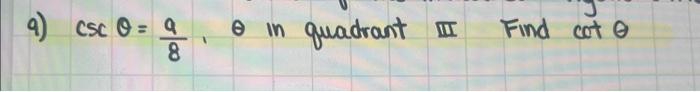 9) csc θ = 9/8, θ in quadrant III Find cot θ